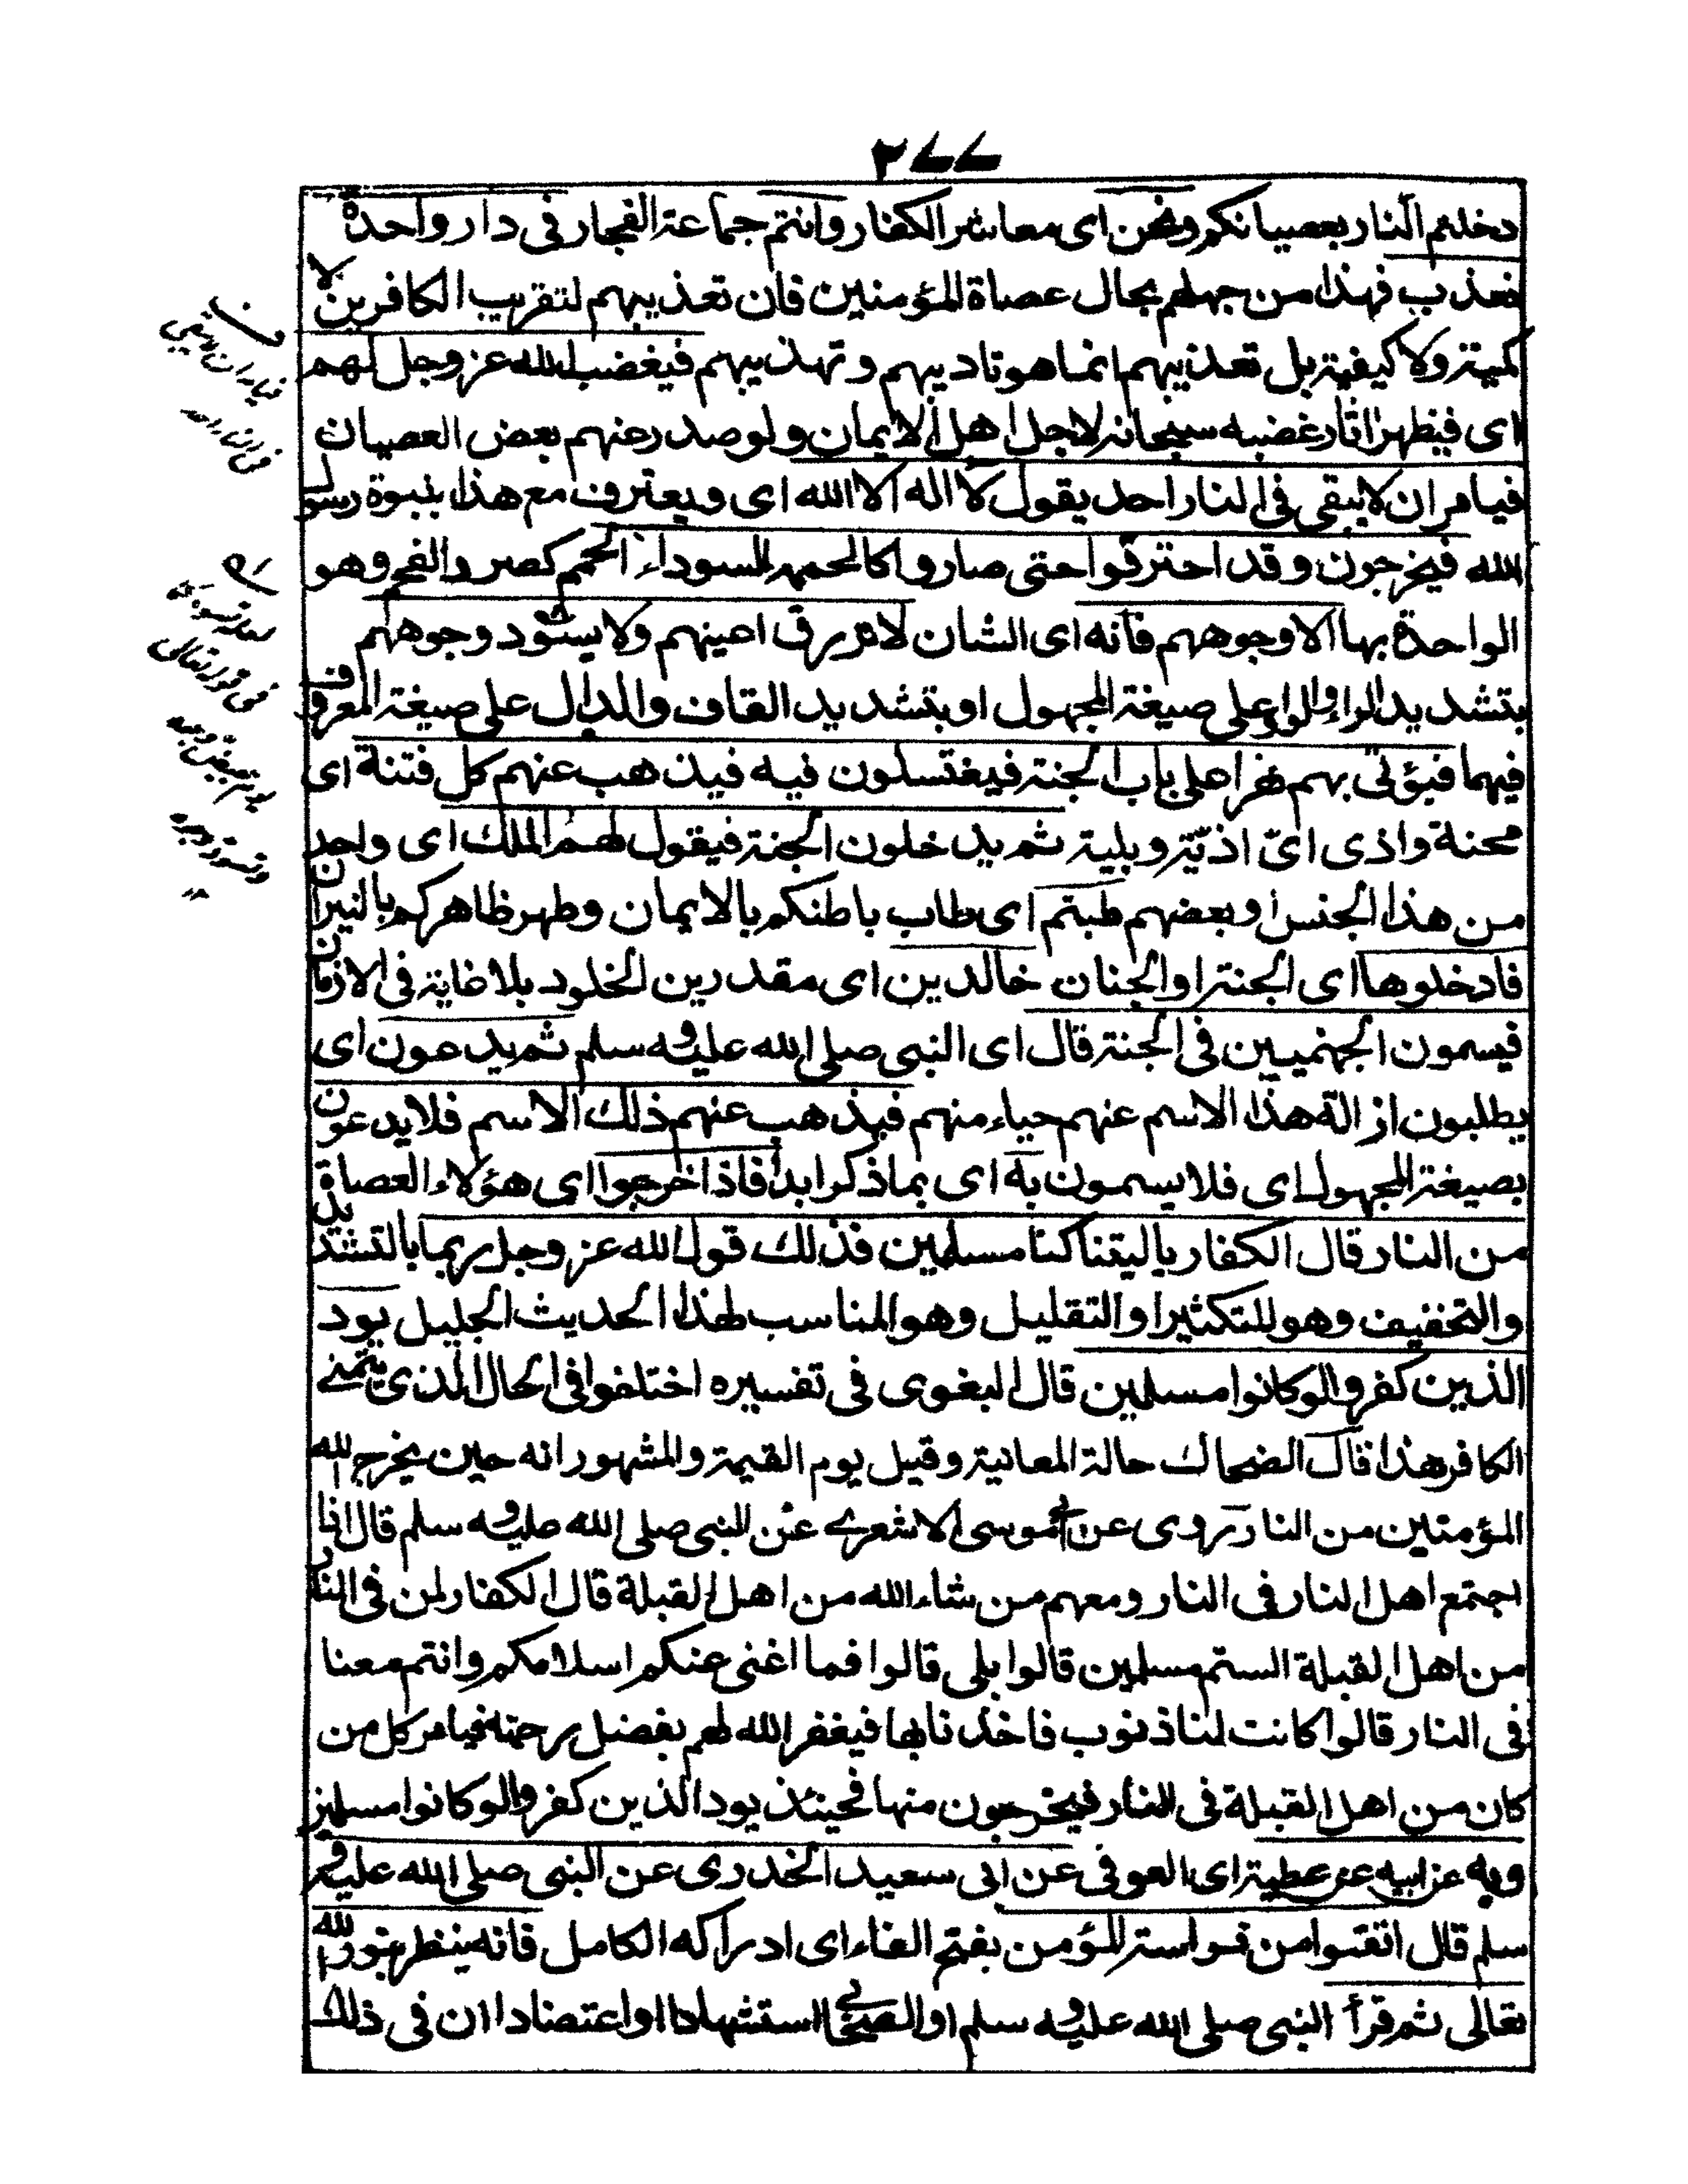 ٢٧٧
دخلتم النار بعصيانكم ونحن اى معاشر الكفار وانتم جماعة الفجار فى دار واحدة
نعذب فهذا من جهلهم بحال عصاة المؤمنين فان تعذيبهم لتقريب الكافرين لا
كمية ولا كيفية بل تعذيبهم انما هو تاديبهم وتهذيبهم فيغضب الله عز وجل لهم
اى فيظهر اثار غضبه سبحانه لاجل اهل الايمان ولو صدر عنهم بعض العصيان
فيامر ان لا يبقى فى النار احد يقول لا اله الا الله اى ويعترف مع هذا بنبوة رسول
الله فيخرجون وقد احترقوا حتى صاروا كالحممة السوداء الحمم كصرد الفحم وهو
الواحدة بها الا وجوههم فانه اى الشان لا تزرق اعينهم ولا يسود وجوههم
بتشديد الراء والواو على صيغة المجهول او بتشديد القاف والدال على صيغة المعروف
فيهما فيؤتى بهم نهرا على باب الجنة فيغتسلون فيه فيذهب عنهم كل فتنة اى
محنة واذى اىّ اذيّة وبلية ثم يدخلون الجنة فيقول لهم الملك اى واحد
من هذا الجنس او بعضهم طبتم اى طاب باطنكم بالايمان وطهر ظاهركم بالنيران
فادخلوها اى الجنة او الجنان خالدين اى مقدرين الخلود بلا غاية فى الازمان
فيسمون الجهنميين فى الجنة قال اى النبى صلى الله عليه وسلم ثم يدعون اى
يطلبون ازالة هذا الاسم عنهم حياء منهم فيذهب عنهم ذلك الاسم فلا يدعون
بصيغة المجهول اى فلا يسمون به اى بما ذكر ابدا فاذا اخرجوا اى هؤلاء العصاة
من النار قال الكفار يا ليتنا كنا مسلمين فذلك قول الله عز وجل ربما بالتشديد
والتخفيف وهو للتكثير او التقليل وهو المناسب لهذا الحديث الجليل يود
الذين كفروا لو كانوا مسلمين قال البغوى فى تفسيره اختلفوا فى الحال الذى يتمنى
الكافر هذا قال الضحاك حالة المعاينة وقيل يوم القيمة والمشهور انه حين يخرج الله
المؤمنين من النار روى عن ابى موسى الاشعرى عن النبى صلى الله عليه وسلم قال اذا
اجتمع اهل النار فى النار ومعهم من شاء الله من اهل القبلة قال الكفار لمن فى النار
من اهل القبلة الستم مسلمين قالوا بلى قالوا فما اغنى عنكم اسلامكم وانتم معنا
فى النار قالوا كانت لنا ذنوب فاخذنا بها فيغفر الله لهم بفضل رحمته فيامر كل من
كان من اهل القبلة فى النار فيخرجون منها فحينئذ يود الذين كفروا لو كانوا مسلمين
وبه عن ابيه عن عطية اى العوفى عن ابى سعيد الخدرى عن النبى صلى الله عليه و
سلم قال اتقوا من فراسة المؤمن بفتح الفاء اى ادراكه الكامل فانه ينظر بنور الله
تعالى ثم قرأ النبى صلى الله عليه وسلم او الصحابى استشهادا او اعتضادا ان فى ذلك